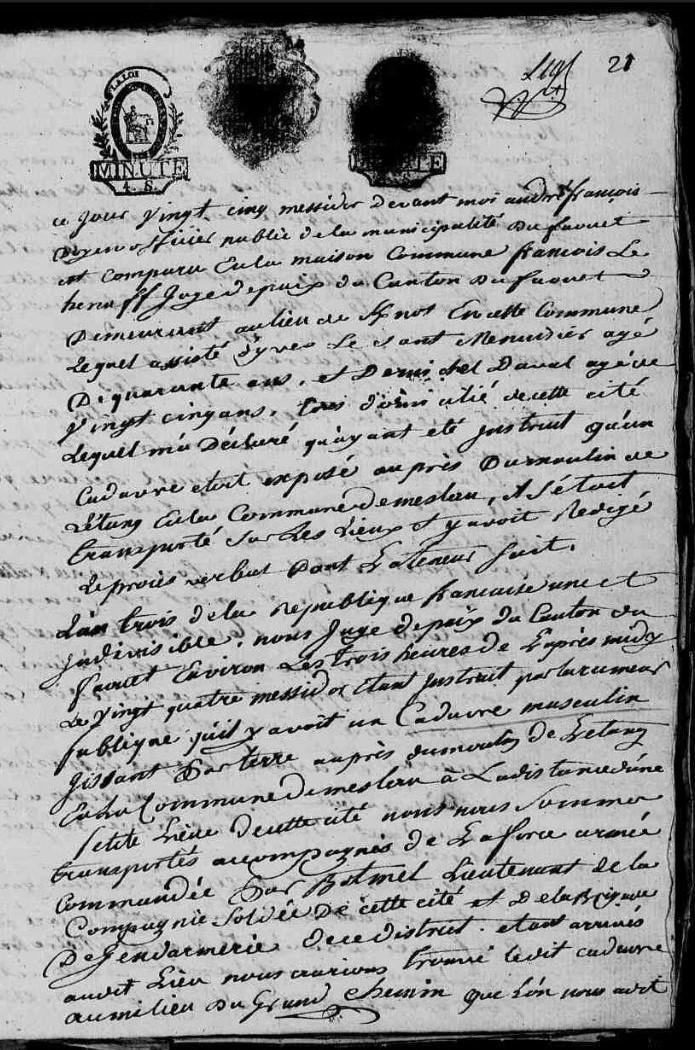 21
LA LOI
MINUTE
4. S.
ce jour vingt cinq messidor devant moi andré françois
officier public de la municipalité du faouet
est comparu en la maison commune françois Le
henaff Juge depaix du Canton du faouet
Demeurant au lieu de En cette Commune
Lequel assisté d'yves Le Menuidier agé
De quarante ans, et De michel Daval agé de
vingt cinq ans, tous domicilié de cette cité
Lequel m'a Déclaré, qu'ayant eté Justruit qu'un
Cadavre etoit exposé auprès Dumoulin de
L'étang En la Commune demeslan, Il s'étoit
transporté sur Les Lieux et y avoit Redigé
Le procés verbal Dont La teneur suit.
L'an trois de la République francaise une et
Jndivisible, nous Juge depaix du Canton du
faouet Environ Les trois heures de L'après midy
Le vingt quatre messidor etant Justruit par la rumeur
publique qu'il y avoit un Cadavre masculin
Gissant par terre auprès dumoulin de L'etang
En la Commune demeslan à La distance d'une
petite Liëue de cette cité nous nous sommes
transportés accompagnés de La force armée
Commandée par Lieutenant de la
Compagnie soldée De cette cité et de la Brigade
De gendarmerie de ce district. etant arrivés
audit Lieu nous aurions trouvé ledit cadavre
au milieu Du Grand chemin que L'on nous a dit